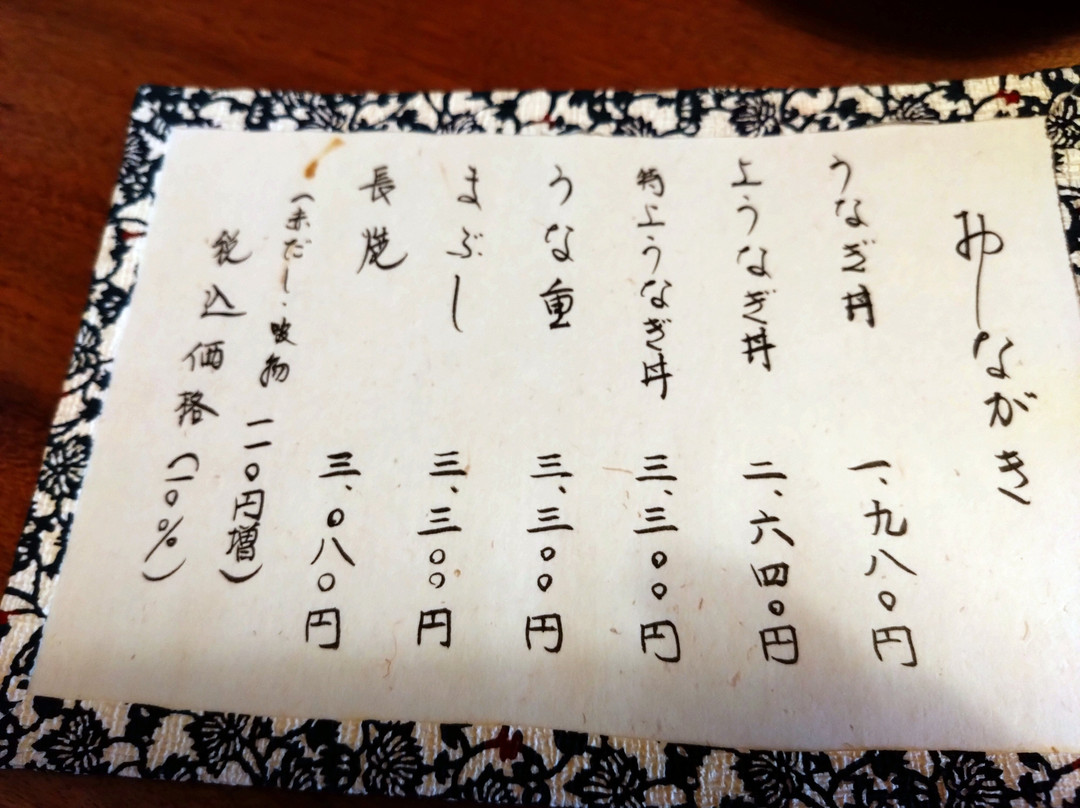 おしながき
うなぎ丼 一、九八〇円
上うなぎ丼 二、六四〇円
特上うなぎ丼 三、三〇〇円
うな重 三、三〇〇円
まぶし 三、三〇〇円
長焼 三、〇八〇円
(赤だし・吸物 一一〇円増)
税込価格(一〇%)